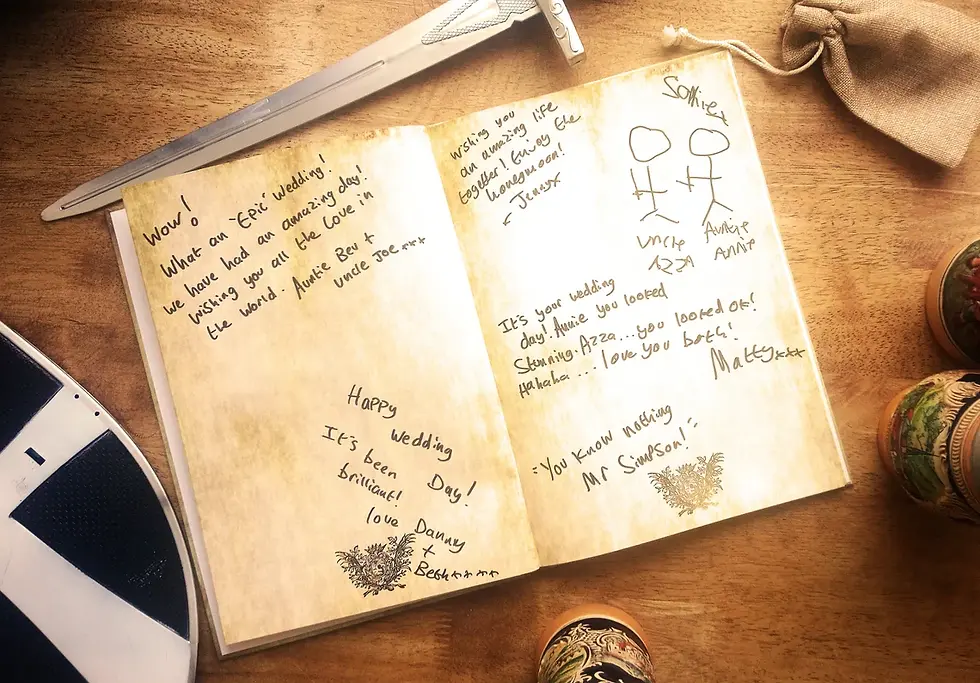 Wow!
What an "Epic" wedding!
we have had an amazing day!
wishing you all the Love in
the world. Auntie Bev +
uncle Joe xxx
Happy
wedding
It's been Day!
brilliant!
love Danny
+
Beth xxxx
wishing you
an amazing life
together! Enjoy the
honeymoon!
Jenny x
uncle Auntie
AZZA Annie
It's your wedding
day! Annie you looked
Stunning. Azza... you looked ok!
Hahaha... love you both!
Matty xxx
"You know nothing
Mr Simpson!"